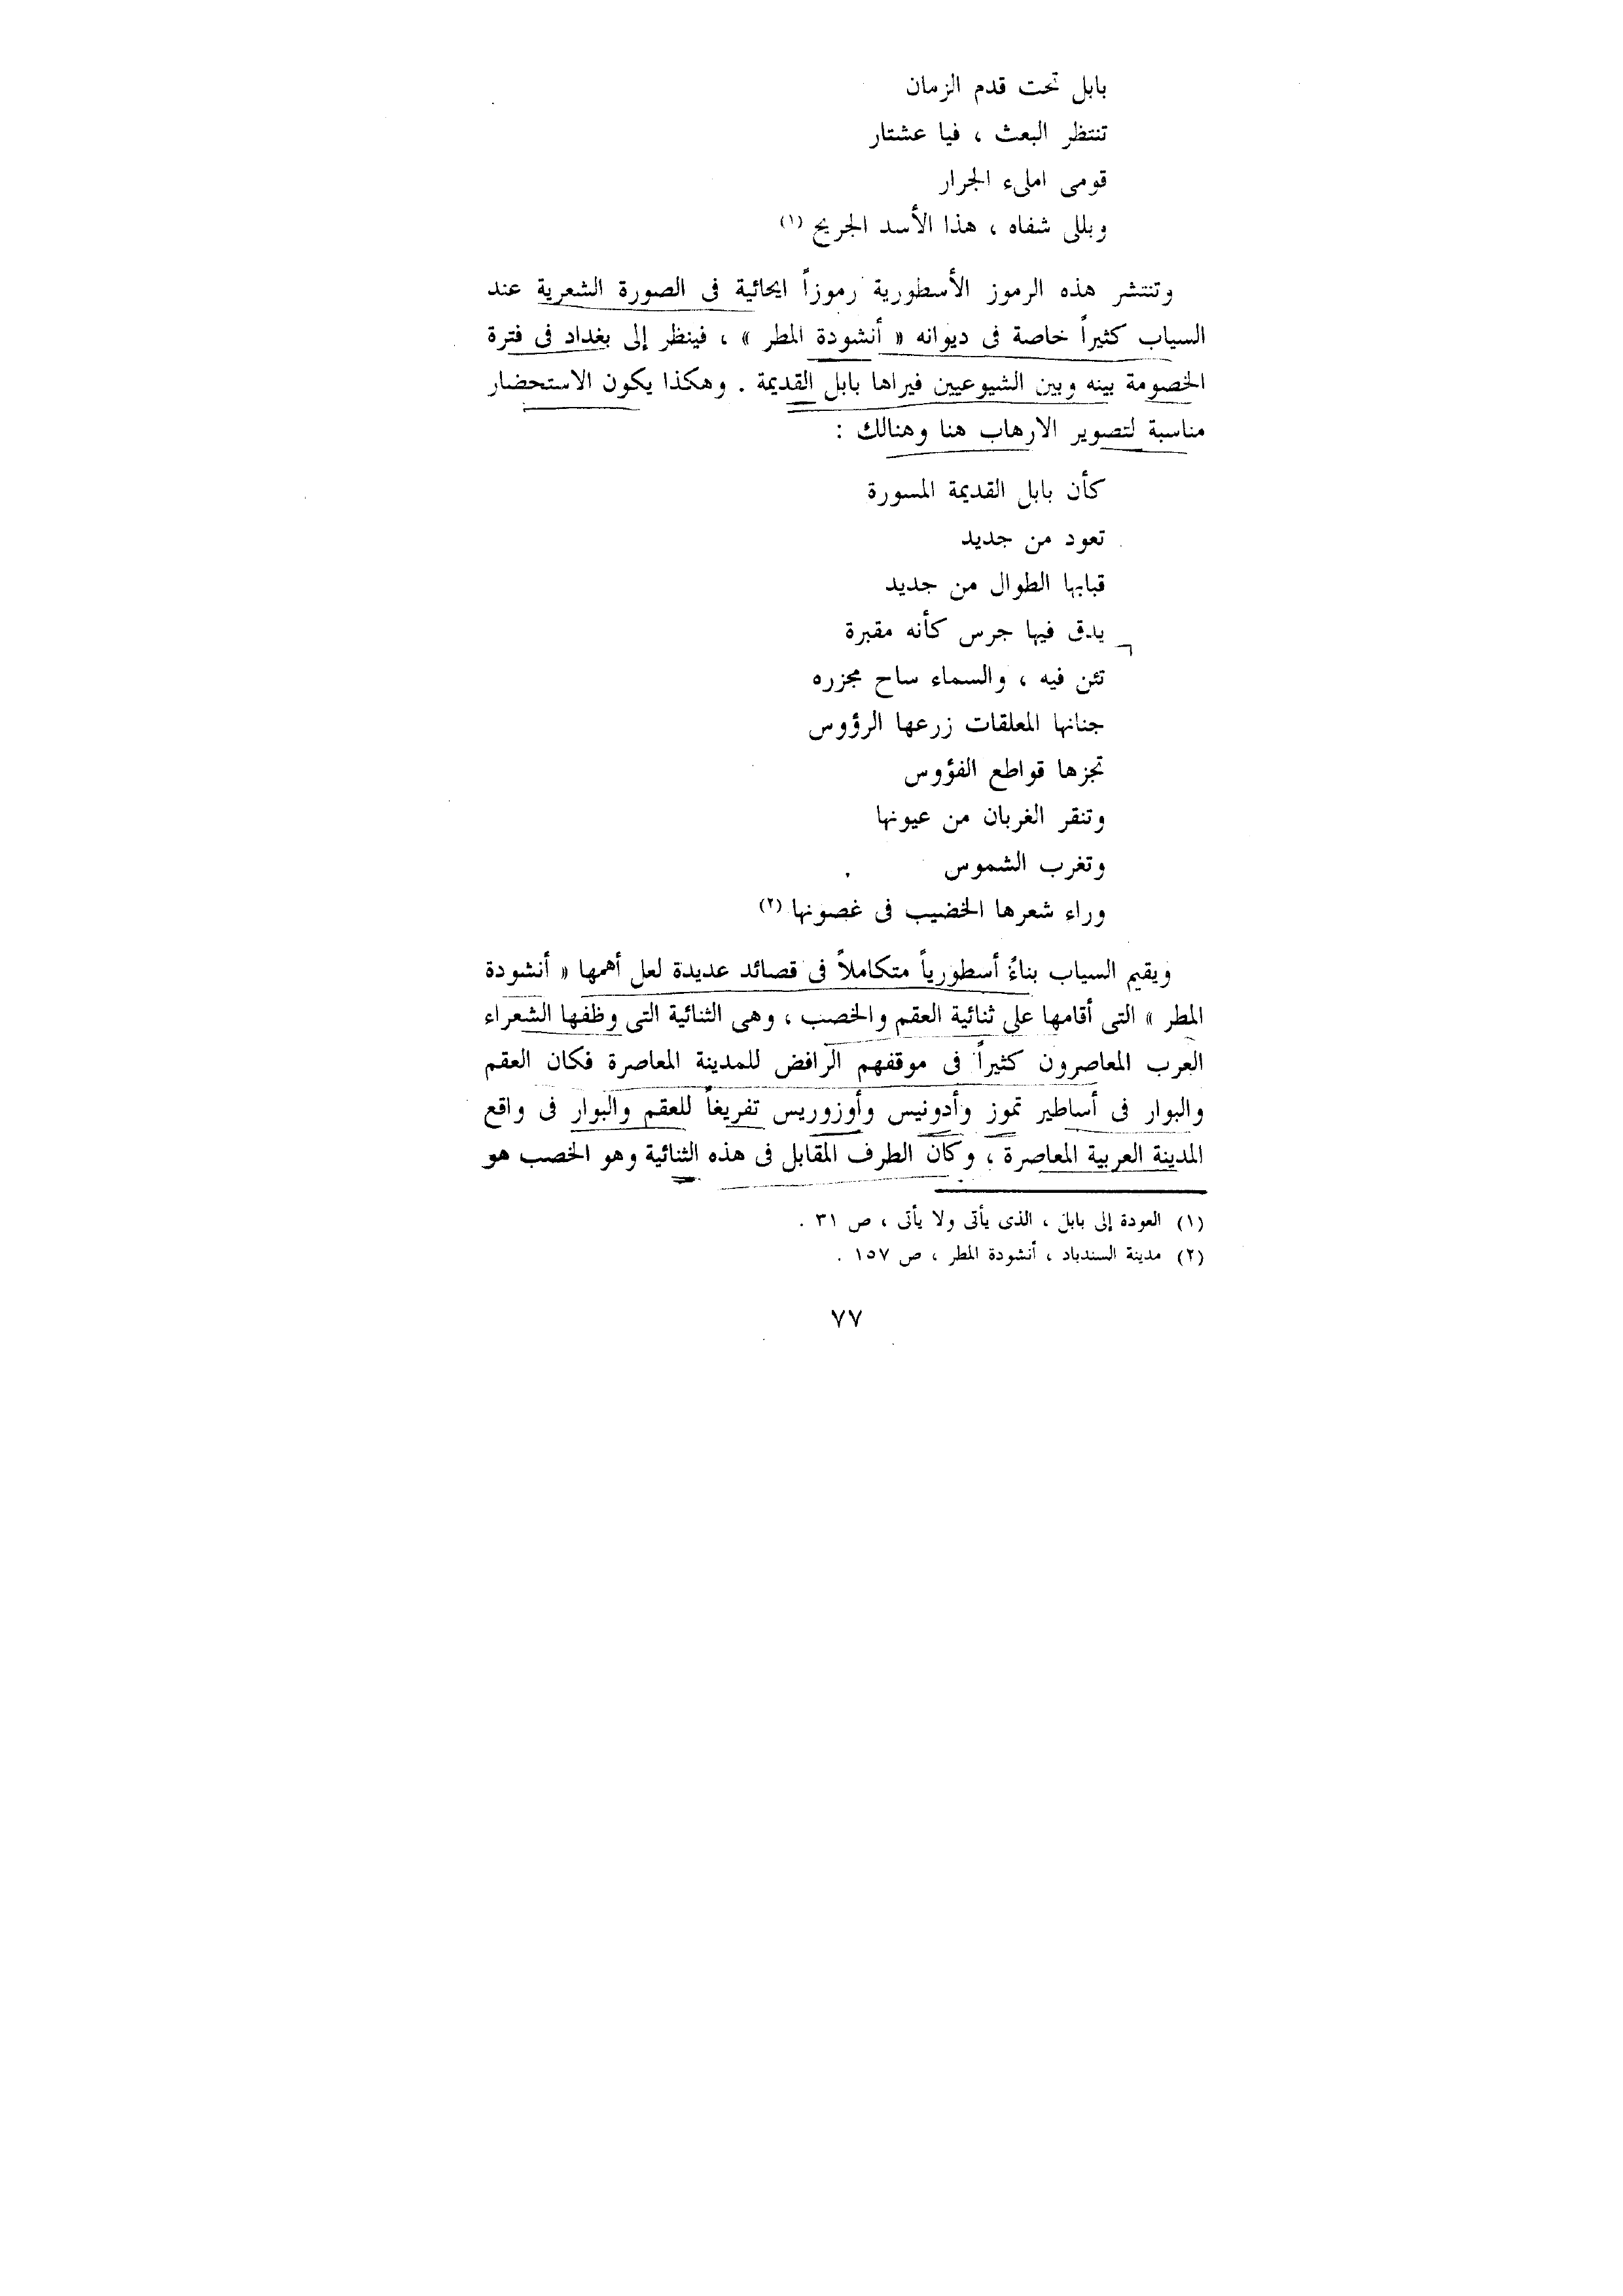 بابل تحت قدم الزمان
تنتظر البعث ، فيا عشتار
قومى املىء الجرار
وبللى شفاه ، هذا الأسد الجريح (١)
وتنتشر هذه الرموز الأسطورية رموزاً ايحائية فى الصورة الشعرية عند
السياب كثيراً خاصة فى ديوانه « أنشودة المطر » ، فينظر إلى بغداد فى فترة
الخصومة بينه وبين الشيوعيين فيراها بابل القديمة . وهكذا يكون الاستحضار
مناسبة لتصوير الارهاب هنا وهنالك :
كأن بابل القديمة المسورة
تعود من جديد
قبابها الطوال من جديد
يدق فيها جرس كأنه مقبرة
تئن فيه ، والسماء ساح مجزره
جنانها المعلقات زرعها الرؤوس
تجزها قواطع الفؤوس
وتنقر الغربان من عيونها
وتغرب الشموس
وراء شعرها الخضيب فى غصونها (٢)
ويقيم السياب بناءً أسطورياً متكاملاً فى قصائد عديدة لعل أهمها « أنشودة
المطر » التى أقامها على ثنائية العقم والخصب ، وهى الثنائية التى وظفها الشعراء
العرب المعاصرون كثيراً فى موقفهم الرافض للمدينة المعاصرة فكان العقم
والبوار فى أساطير تموز وأدونيس وأوزوريس تفريغاً للعقم والبوار فى واقع
المدينة العربية المعاصرة ، وكان الطرف المقابل فى هذه الثنائية وهو الخصب هو
(١) العودة إلى بابل ، الذى يأتى ولا يأتى ، ص ٣١ .
(٢) مدينة السندباد ، أنشودة المطر ، ص ١٥٧ .
٧٧